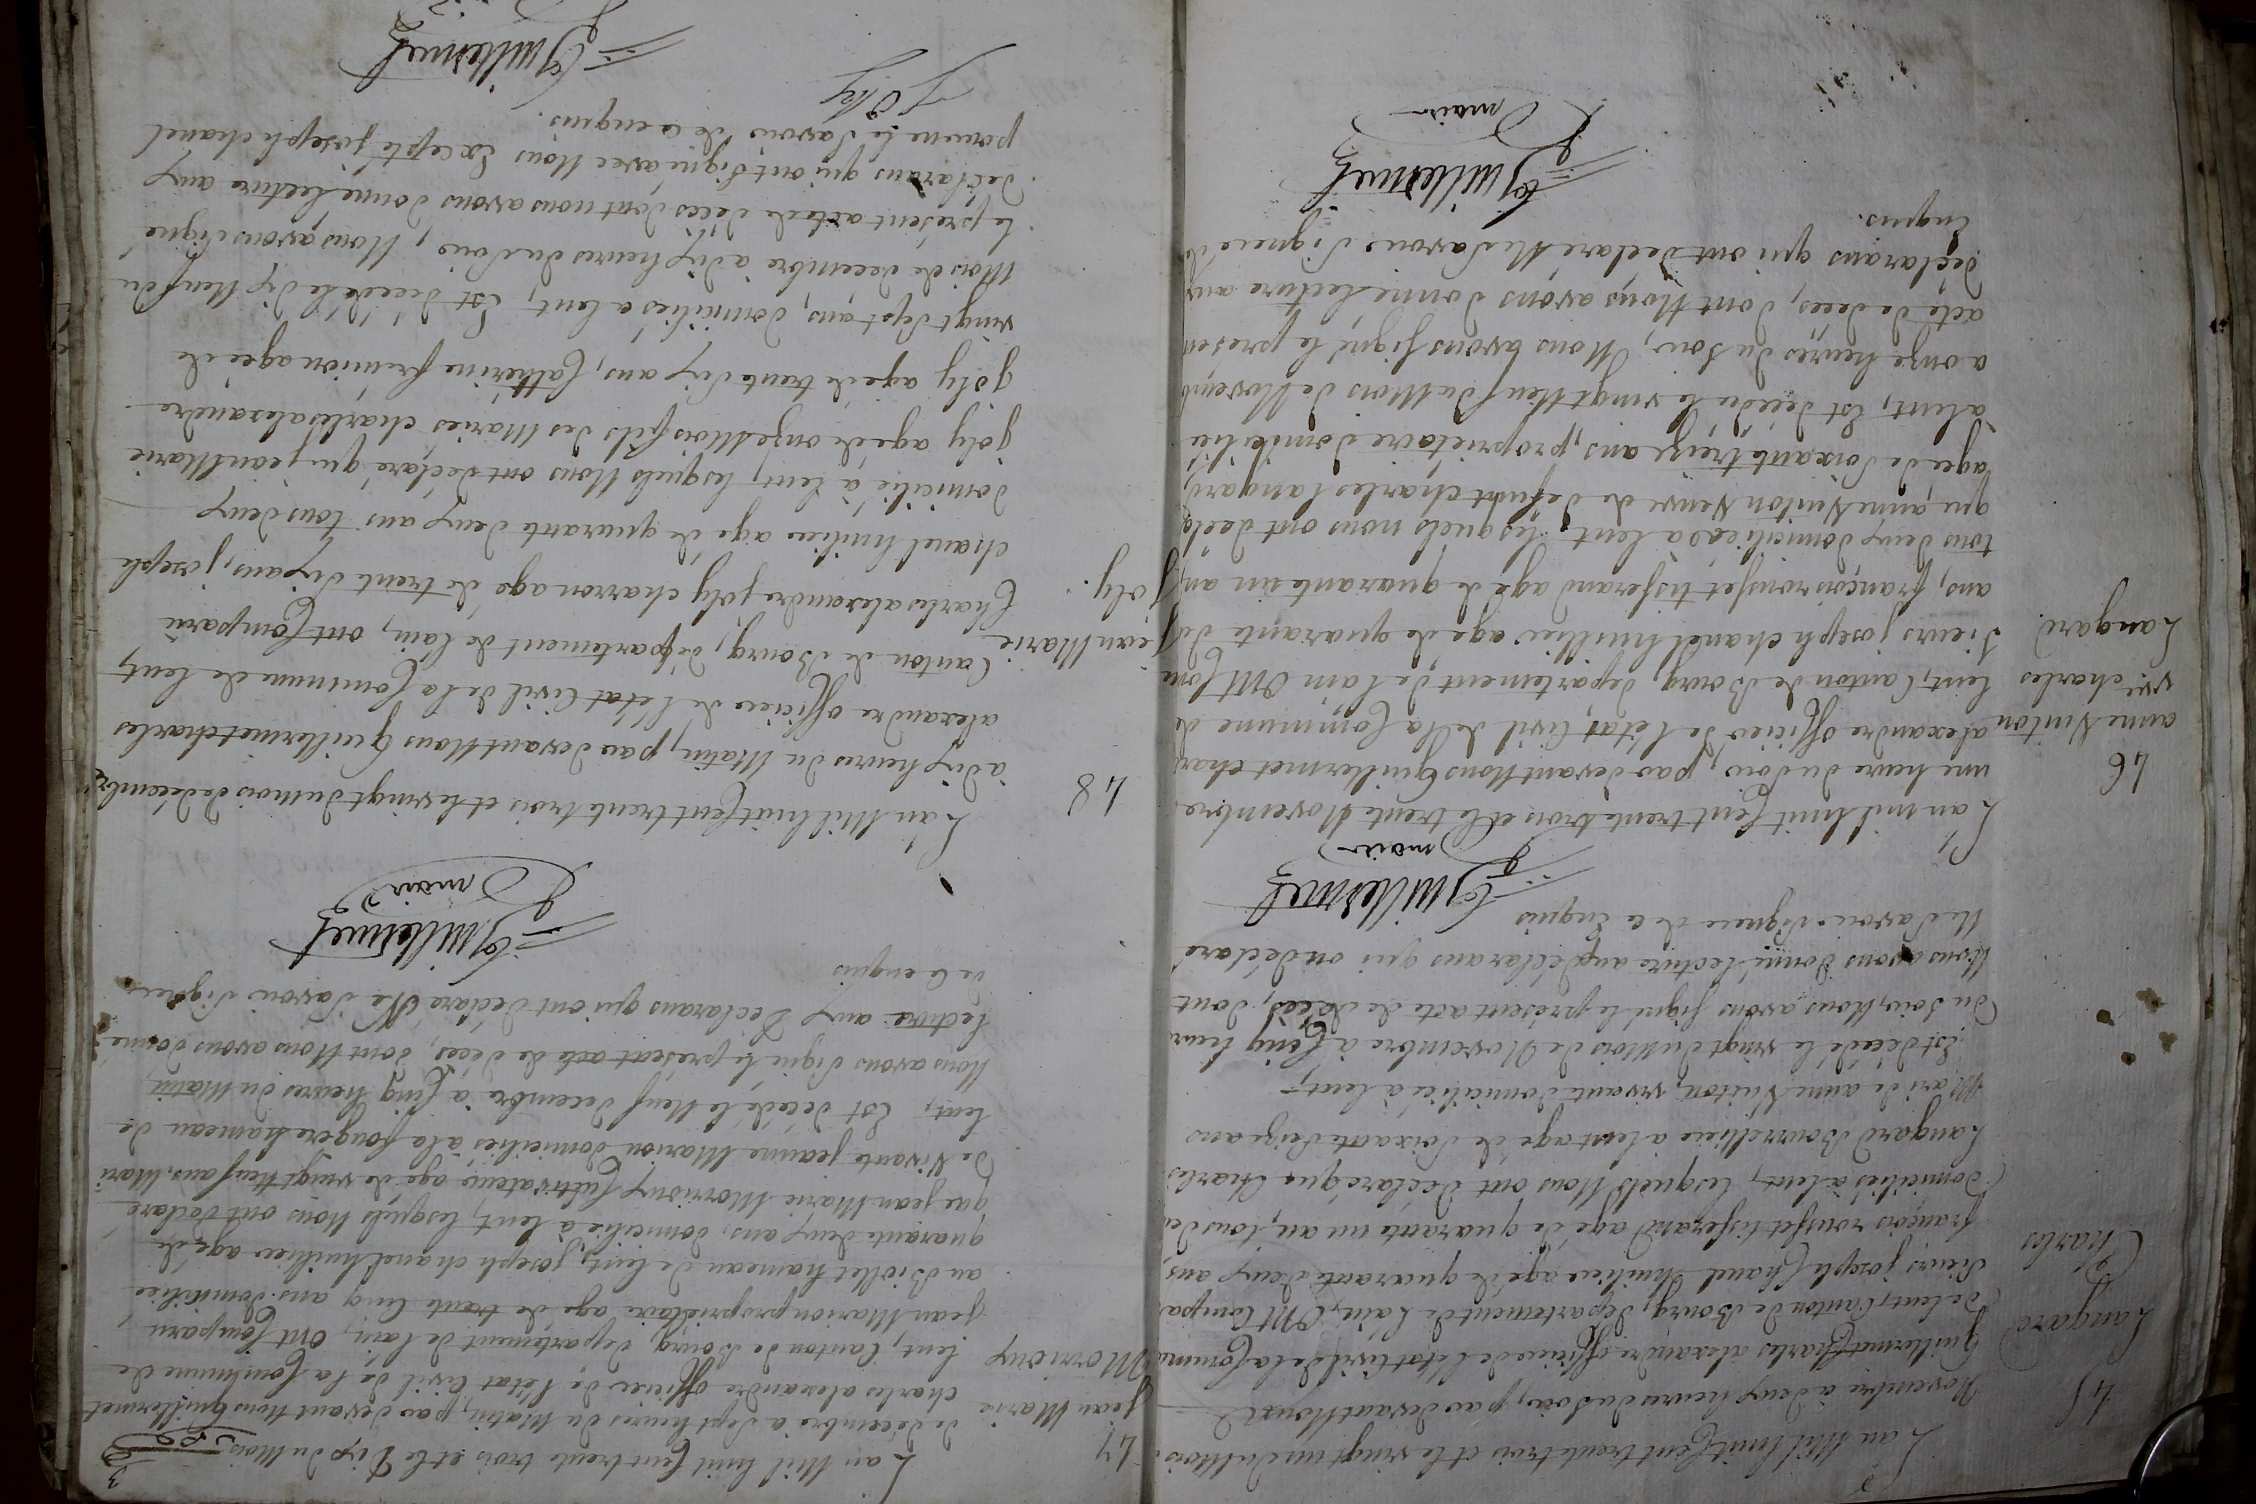 45
Langard
Charles
L'an Mil huit Cent trente trois et le vingt un du Mois
Novembre à deux heures du soir, par devant Nous
Guillermet Charles alexandre officier de l'état Civil de la Commune
de lent, Canton de Bourg, département de l'ain, Ont Compa
Sieurs joseph Chanel huilier agé de quarante deux ans,
françois rousset tisserand agé de quarante un an, tous de
domiciliés à lent, lesquels Nous ont déclaré que Charles
Langard Bourrelier à lent agé de soixante seize ans
Mari de anne Nuiton, vivante domiciliée à lent,
Est décédé le vingt du Mois de Novembre à Cinq heur
du soir, Nous avons signé le présent acte de décès, dont
Nous avons donné lecture aux déclarans qui on déclaré
Ne Savoir Signer de Ce Enquis
Guillermet
maire
46
anne Nuiton
vve charles
Langard.
L'an mil huit Cent trente trois et le trente Novembre
une heure du soir, par devant Nous Guillermet Char
alexandre officier de l'état Civil de la Commune de
lent, Canton de Bourg, département de l'ain Ont Com
Sieurs joseph chanel huillier agé de quarante de
ans, françois rousset tisserand agé de quarante un an,
tous deux domiciliés à lent, lesquels nous ont décla
que anne Nuiton Veuve de défunt charles Langard
agée de soixante treize ans, propriétaire domiciliée
à lent, Est décédée le vingt Neuf du Mois de Novemb
à onze heures du Soir, Nous avons signé le présen
acte de décès, dont Nous avons donné lecture aux
déclarans qui ont déclaré Ne Savoir Signer de
Enquis.
Guillermet
maire
47
Jean Marie
Morrioux
L'an Mil huit Cent trente trois et le Dix du Mois
de décembre à Sept heures du Matin, par devant Nous Guillermet
charles alexandre officier de l'état Civil de la Commune de
lent, Canton de Bourg, département de l'ain, Ont Comparu
jean Marion propriétaire agé de trente Cinq ans domicilié
au Biollet hameau de lent, joseph chanel huillier agé de
quarante deux ans, domicilié à lent, lesquels Nous ont déclaré
que jean Marie Morrioux Cultivateur agé de vingt Neuf ans, Mari
De Vivante jeanne Marion domiciliés à la fougère hameau de
lent, Est décédé le Neuf décembre à Cinq heures du Matin,
Nous avons signé le présent acte de décès, dont Nous avons donné
lecture aux Déclarans qui ont déclaré Ne Savoir Signer
de Ce enquis
Guillermet
maire
48
jean Marie
joly.
L'an Mil huit Cent trente trois et le vingt du Mois de décembre
à dix heures du Matin, par devant Nous Guillermet charles
alexandre officier de l'état Civil de la Commune de lent,
Canton de Bourg, département de l'ain, ont Comparu
Charles alexandre joly charron agé de trente dix ans, joseph
chanel huilier agé de quarante deux ans tous deux
domicilié à lent, lesquels Nous ont déclaré que jean Marie
joly agé de onze Mois fils des Mariés charles alexandre
joly agé de trente dix ans, Catherine agée de
vingt sept ans, domiciliés à lent, Est décédé le dix Neuf du
Mois de décembre à dix heures du Soir, Nous avons signé
le présent acte de décès dont nous avons donné lecture aux
déclarans qui ont Signé avec Nous Excepté joseph chanel
pour ne le Savoir de ce enquis.
Joly
Guillermet